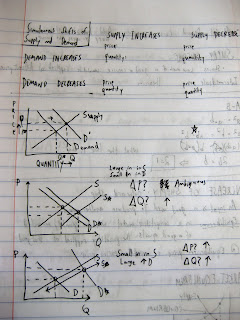 Simultaneous Shifts of Supply and Demand
SUPPLY INCREASES
SUPPLY DECREASE
price
quantity
price
quantity
DEMAND INCREASES
price
quantity
price
quantity
DEMAND DECREASES
Supply
D'
Demand
QUANTITY
Q
Large in in S
Small in in D
ΔP? Ambiguous
ΔQ? ↑
P
S
D
Q
Small in in S
Large ↑ D
ΔP? ↑
ΔQ? ↑
P
S
D
Q